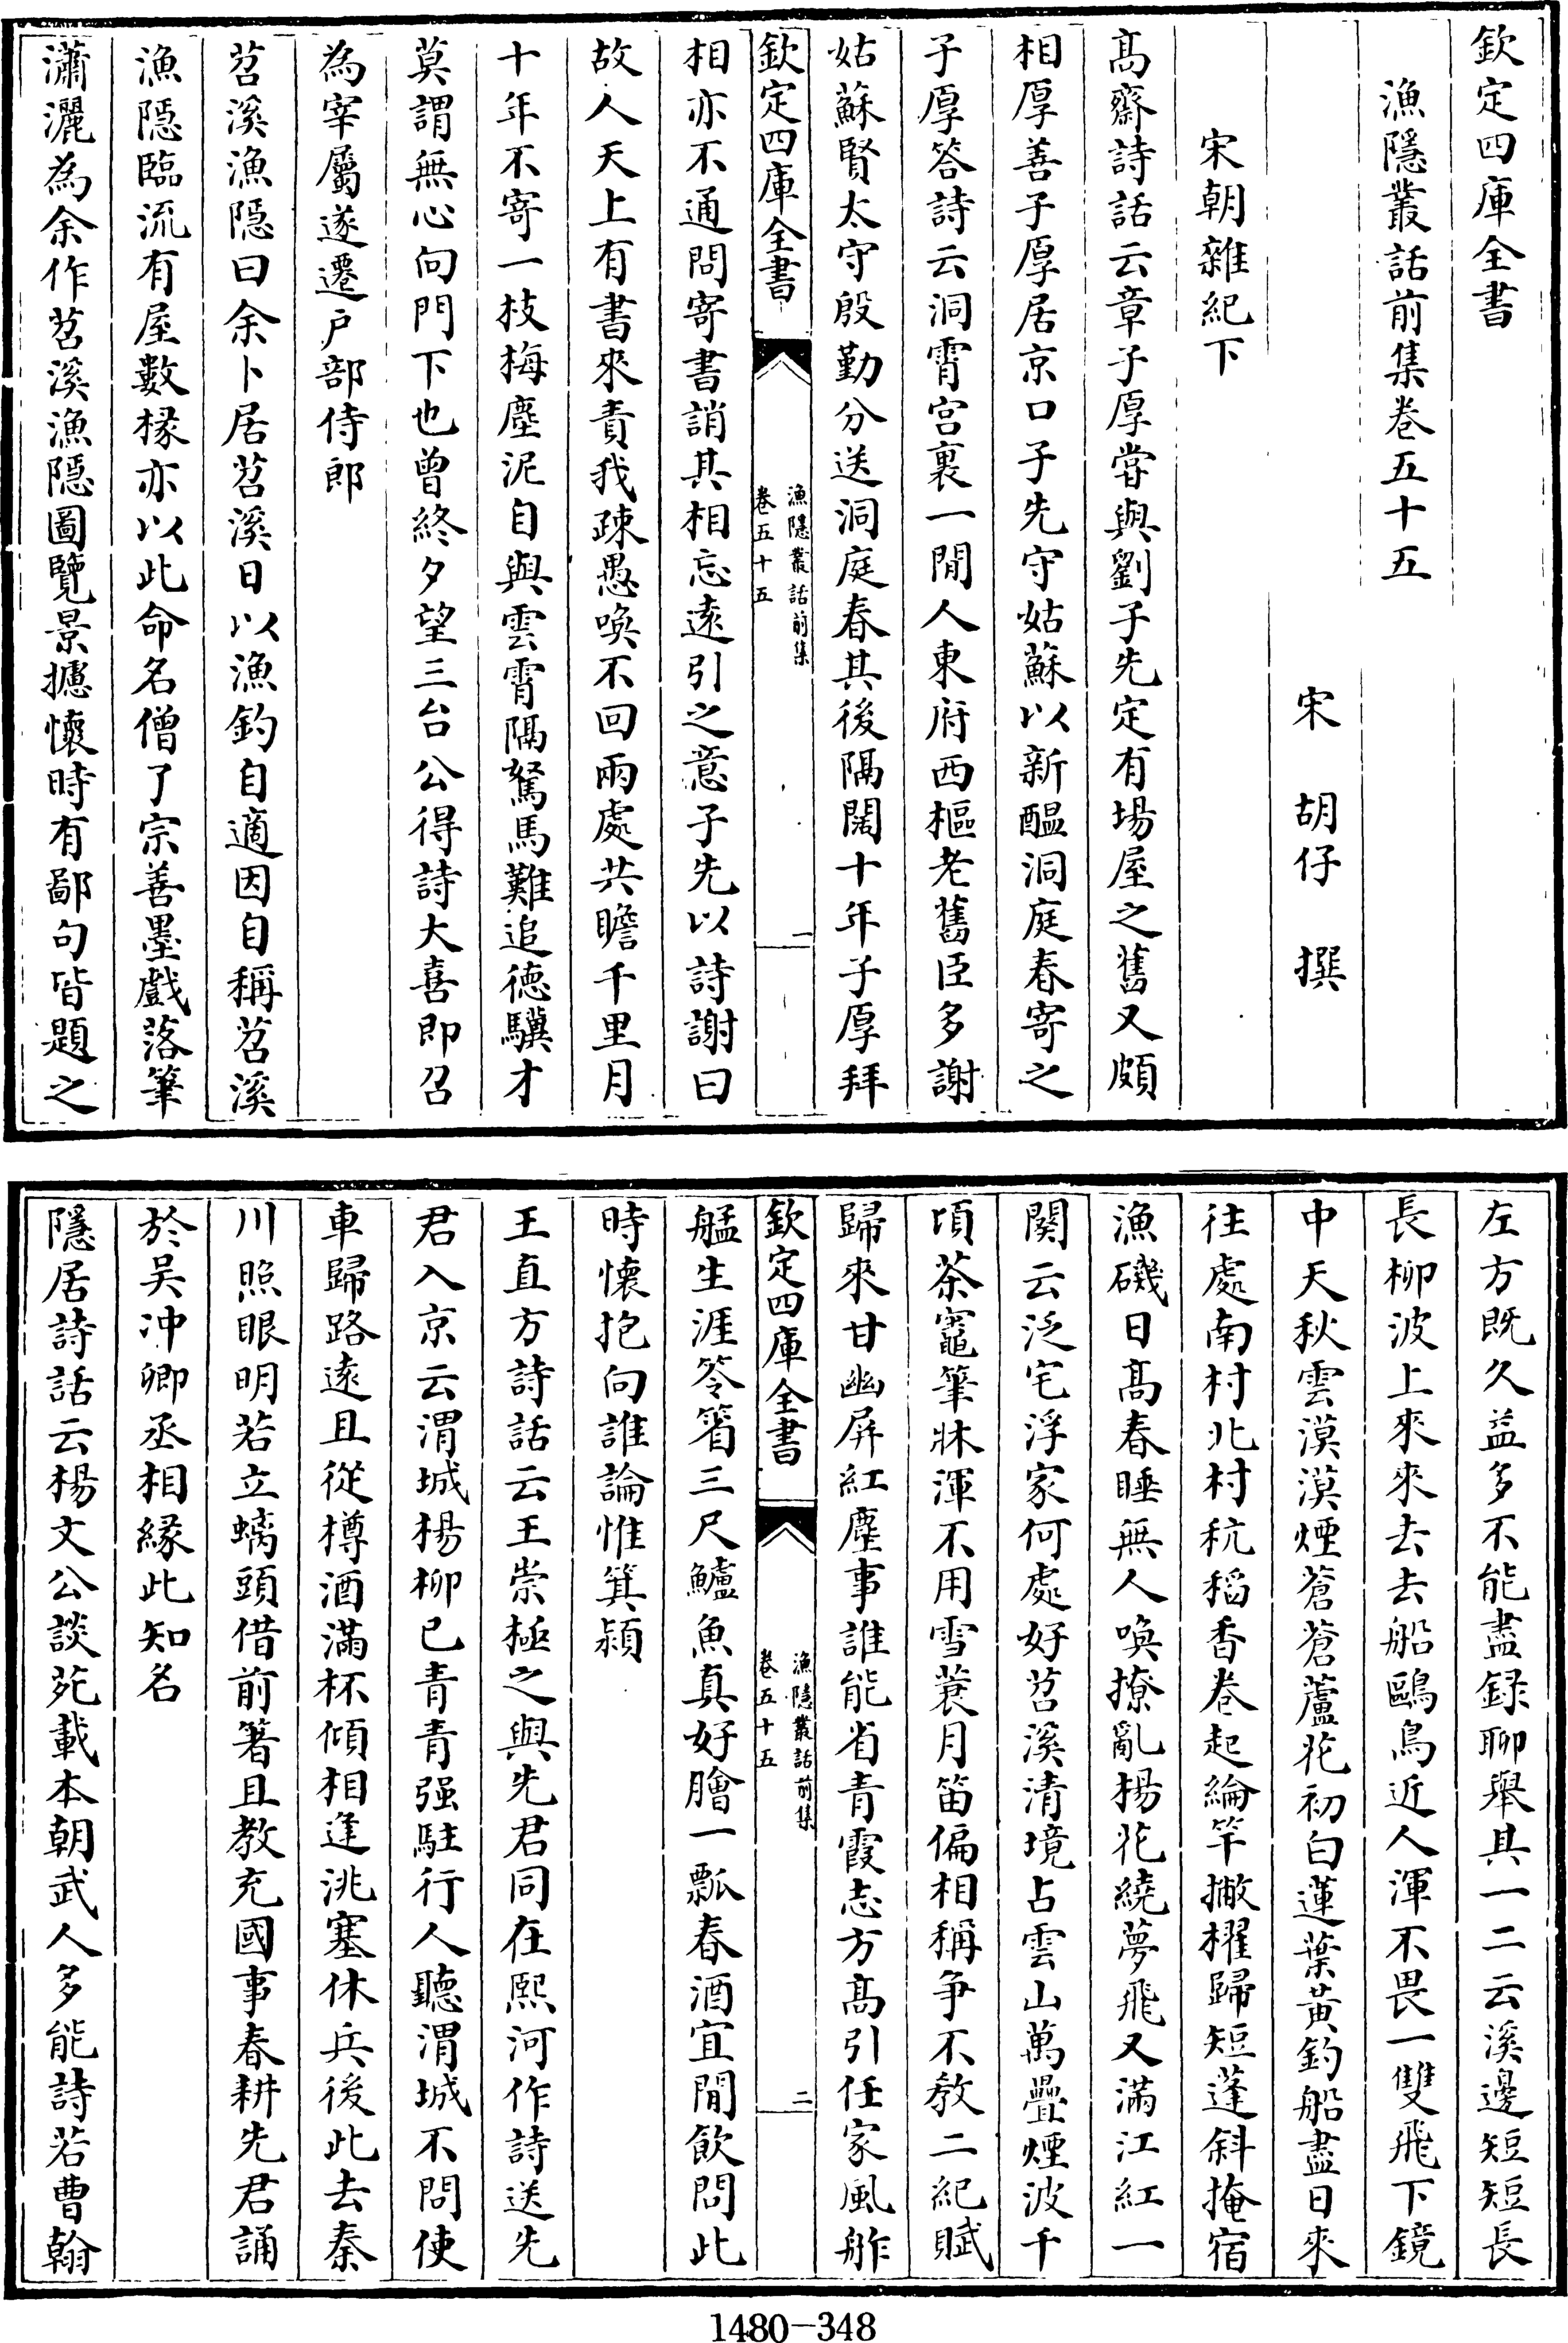 欽定四庫全書
漁隱叢話前集卷五十五
宋　胡仔　撰
宋朝雜紀下
高齋詩話云章子厚甞與劉子先定有場屋之舊又頗
相厚善子厚居京口子先守姑蘇以新醖洞庭春寄之
子厚答詩云洞霄宫裏一閒人東府西樞老舊臣多謝
姑蘇賢太守殷勤分送洞庭春其後隔闊十年子厚拜
欽定四庫全書
漁隱叢話前集
卷五十五
一
相亦不通問寄書誚其相忘逺引之意子先以詩謝曰
故人天上有書來責我疎愚喚不回兩處共瞻千里月
十年不寄一枝梅塵泥自與雲霄隔駑馬難追德驥才
莫謂無心向門下也曾終夕望三台公得詩大喜即召
為宰屬遂遷戸部侍郎
苕溪漁隱曰余卜居苕溪日以漁釣自適因自稱苕溪
漁隱臨流有屋數椽亦以此命名僧了宗善墨戲落筆
瀟灑為余作苕溪漁隱圖覽景攄懷時有鄙句皆題之
左方既久益多不能盡録聊舉其一二云溪邊短短長
長栁波上來來去去船鷗鳥近人渾不畏一雙飛下鏡
中天秋雲漠漠煙蒼蒼蘆花初白蓮葉黃釣船盡日來
往處南村北村秔稻香卷起綸竿撇櫂歸短蓬斜掩宿
漁磯日髙春睡無人喚撩亂楊花繞夢飛又滿江紅一
闋云泛宅浮家何處好苕溪清境占雲山萬疊煙波千
頃茶竈筆牀渾不用雪蓑月笛偏相稱爭不教二紀賦
歸來甘幽屏紅塵事誰能省青霞志方髙引任家風舴
欽定四庫全書
漁隱叢話前集
卷五十五
二
艋生涯笭箵三尺鱸魚真好膾一瓢春酒宜閒飲問此
時懷抱向誰論惟箕潁
王直方詩話云王崇極之與先君同在熙河作詩送先
君入京云渭城楊栁已青青强駐行人聽渭城不問使
車歸路逺且從樽酒滿杯傾相逢洮塞休兵後此去秦
川照眼明若立螭頭借前箸且教充國事春耕先君誦
於吴冲卿丞相縁此知名
隱居詩話云楊文公談苑載本朝武人多能詩若曹翰
1480-348